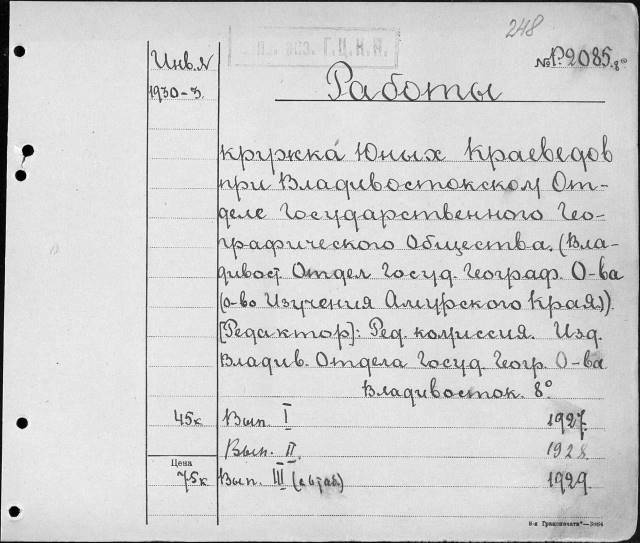 248
Инв. N
№ Р.2085.8°
1930-3.
Работы
кружка Юных Краеведов
при Владивостокском От-
деле Государственного Гео-
графического Общества. (Вла-
дивост. Отдел Госуд. Географ. О-ва
(о-во Изучения Амурского Края)).
[Редактор]: Ред. комиссия. Изд.
Владив. Отдела Госуд. Геогр. О-ва
Владивосток. 8°
45к Вып. I 1927.
Вып. II. 1928.
Цена
75к Вып. III 1929.